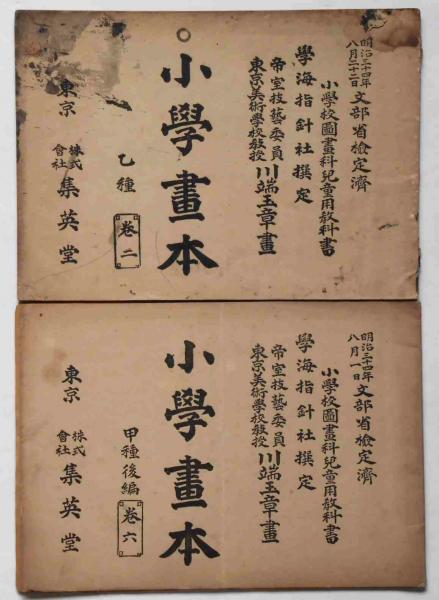 明治三十四年
八月二十二日
文部省檢定濟
小學校圖畫科兒童用教科書
學海指針社撰定
帝室技藝委員
東京美術學校教授
川端玉章畫
小學畫本
乙種
卷二
東京
株式
會社
集英堂
明治三十四年
八月一日
文部省檢定濟
小學校圖畫科兒童用教科書
學海指針社撰定
帝室技藝委員
東京美術學校教授
川端玉章畫
小學畫本
甲種後編
卷六
東京
株式
會社
集英堂